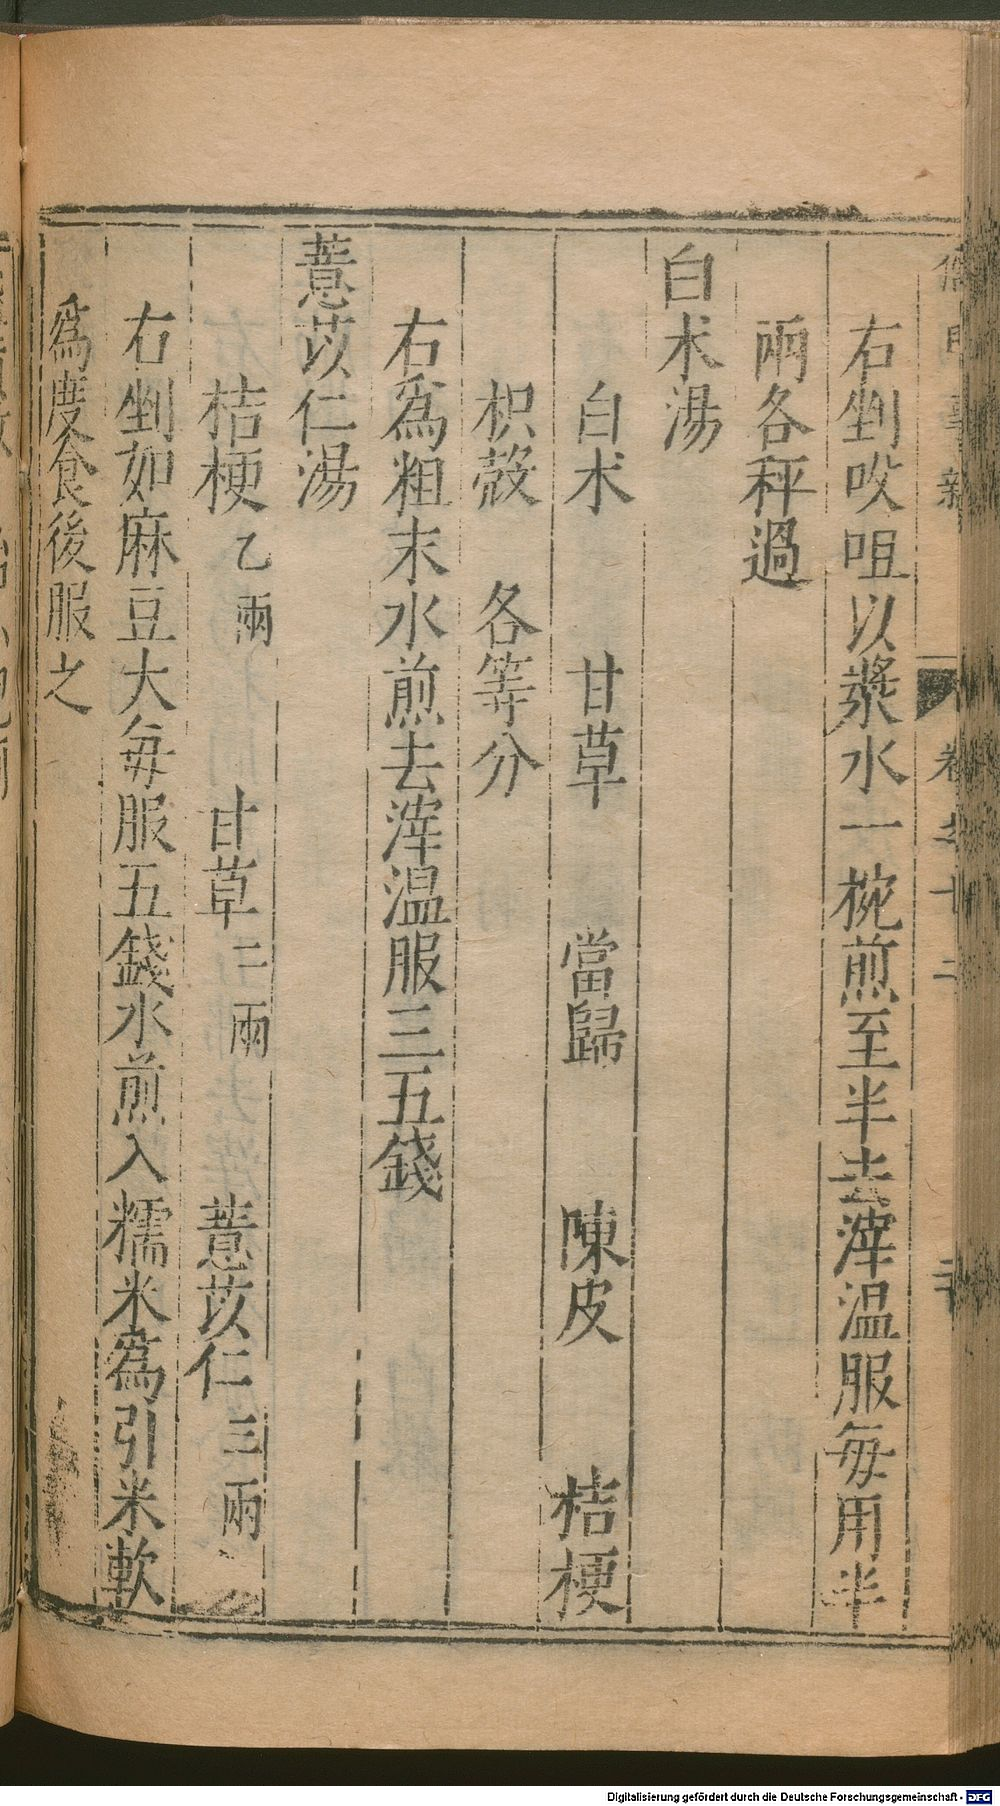 右剉㕮咀以漿水一椀煎至半去滓温服每用半
兩各秤過
白术湯
白术 甘草 當歸 陳皮 桔梗
枳殼 各等分
右爲粗末水煎去滓温服三五錢
薏苡仁湯
桔梗乙兩 甘草二兩 薏苡仁三兩
右剉如麻豆大每服五錢水煎入糯米爲引米軟
爲度食後服之
Digitalisierung gefördert durch die Deutsche Forschungsgemeinschaft - DFG